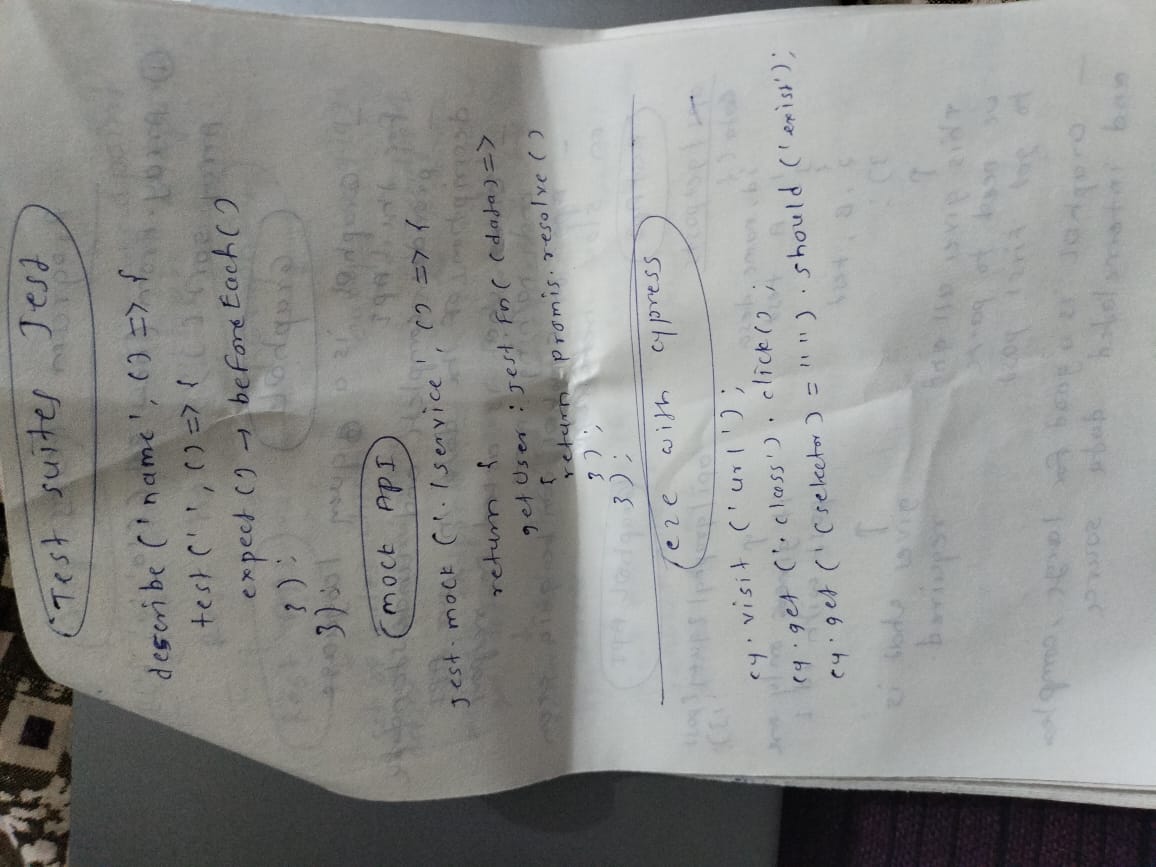 Test suites Jest
describe('name', () => {
test('', () => {
expect() → beforeEach()
});
});
mock API
jest.mock('./service', () => {
return {
getUser: jest.fn((data) =>
{
return promis.resolve()
});
});
e2e with cypress
cy.visit('url');
cy.get('.class').click();
cy.get('(selector) = "").should('exist');